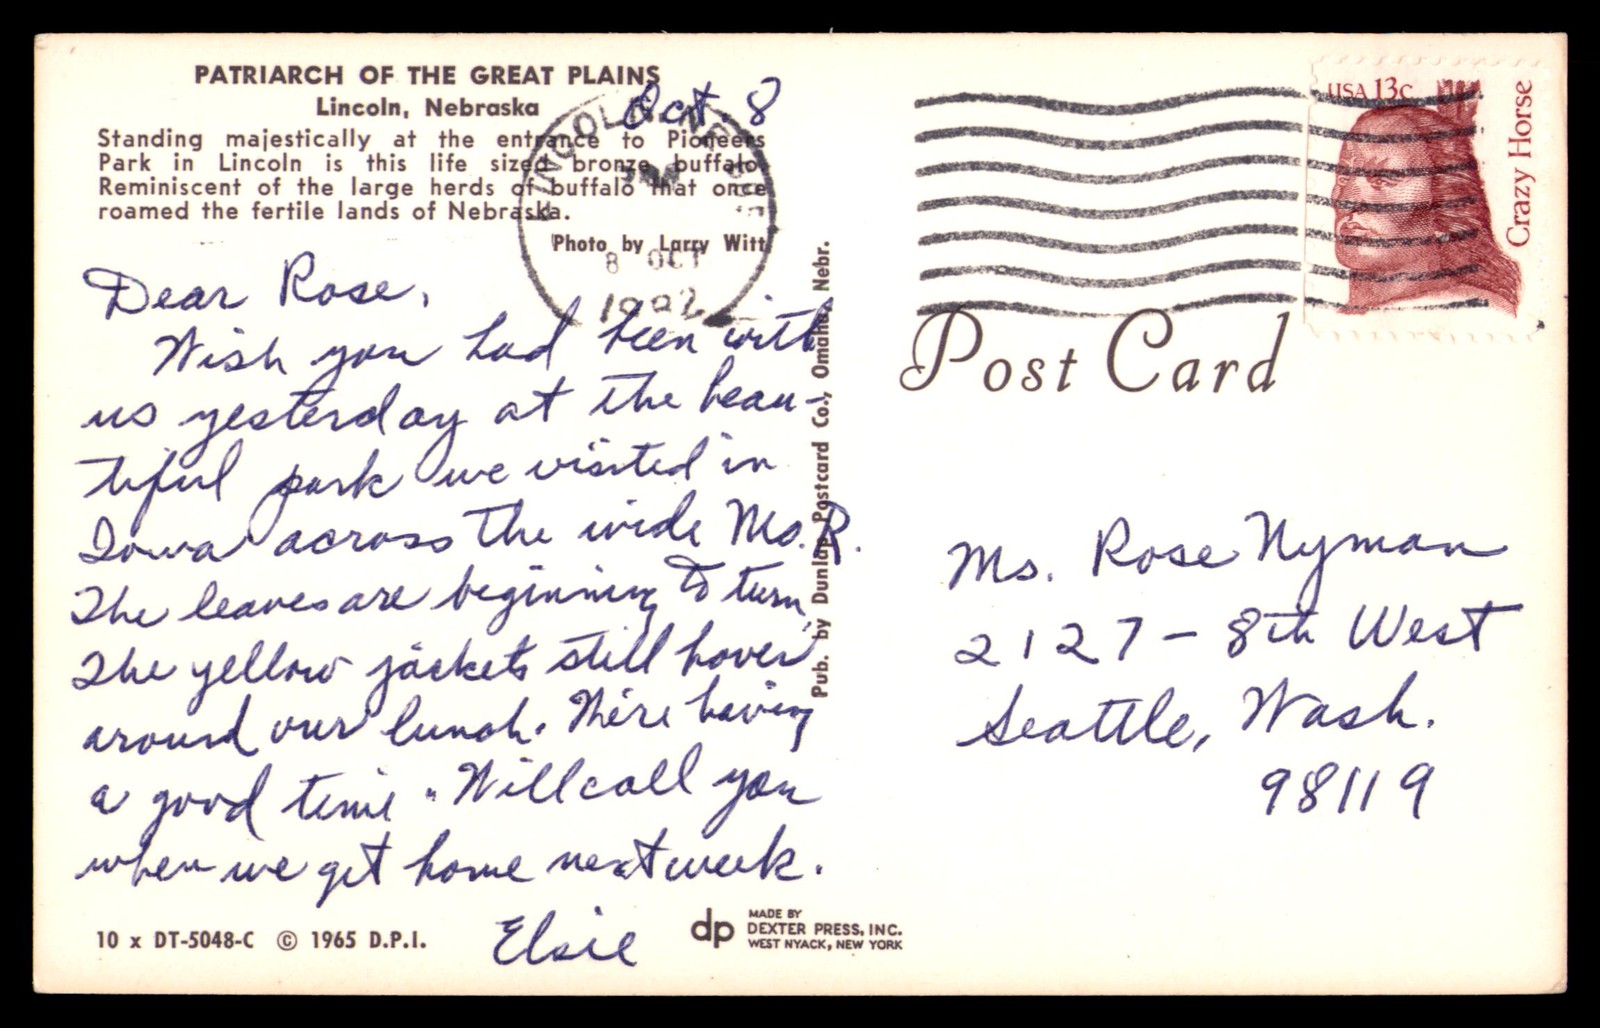 PATRIARCH OF THE GREAT PLAINS
Lincoln, Nebraska
Standing majestically at the entrance to Pioneers
Park in Lincoln is this life sized bronze buffalo.
Reminiscent of the large herds of buffalo that once
roamed the fertile lands of Nebraska.
Photo by Larry Witt
Oct. 8
8 OCT
Dear Rose,
Wish you had been with
us yesterday at the beau-
tiful park we visited in
Iowa across the wide Mo. R.
The leaves are beginning to turn,
The yellow jackets still hover
around our lunch. We're having
a good time. Will call you
when we get home next week.
Elsie
10 x DT-5048-C © 1965 D.P.I.
dp
MADE BY
DEXTER PRESS, INC.
WEST NYACK, NEW YORK
Pub. by Dunlap Postcard Co., Omaha, Nebr.
USA 13c
Crazy Horse
Post Card
Ms. Rose Nyman
2127 - 8th West
Seattle, Wash.
98119